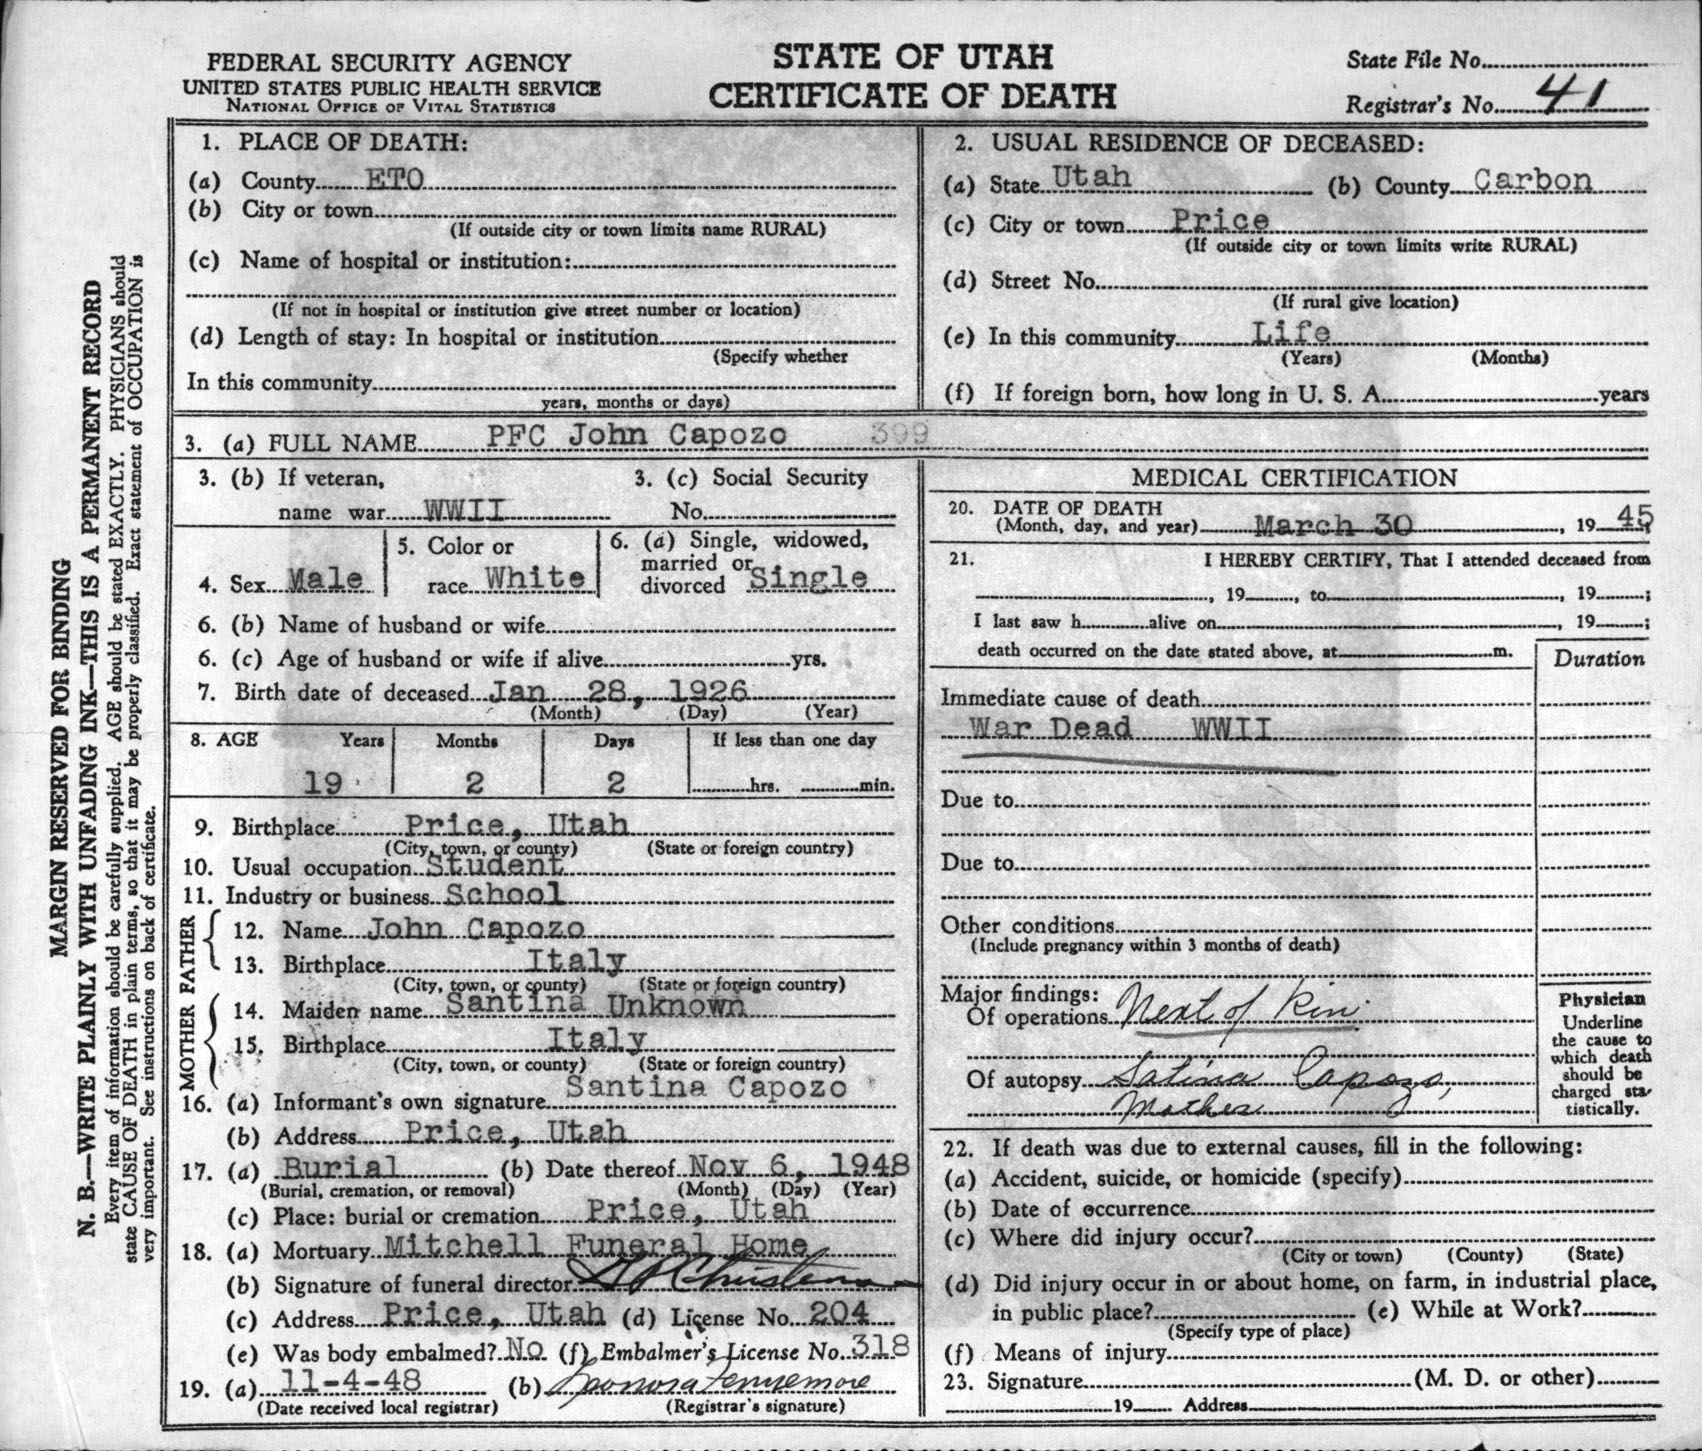 FEDERAL SECURITY AGENCY
UNITED STATES PUBLIC HEALTH SERVICE
NATIONAL OFFICE OF VITAL STATISTICS
STATE OF UTAH
CERTIFICATE OF DEATH
State File No.
Registrar's No. 41
MARGIN RESERVED FOR BINDING
N. B.—WRITE PLAINLY WITH UNFADING INK—THIS IS A PERMANENT RECORD
Every item of information should be carefully supplied. AGE should be stated EXACTLY. PHYSICIANS should
state CAUSE OF DEATH in plain terms, so that it may be properly classified. Exact statement of OCCUPATION is
very important. See instructions on back of certificate.
1. PLACE OF DEATH:
(a) County ETO
(b) City or town
(If outside city or town limits name RURAL)
(c) Name of hospital or institution:
(If not in hospital or institution give street number or location)
(d) Length of stay: In hospital or institution
(Specify whether
In this community
years, months or days)
2. USUAL RESIDENCE OF DECEASED:
(a) State Utah (b) County Carbon
(c) City or town Price
(If outside city or town limits write RURAL)
(d) Street No.
(If rural give location)
(e) In this community Life
(Years) (Months)
(f) If foreign born, how long in U. S. A. years
3. (a) FULL NAME PFC John Capozo 399
3. (b) If veteran, 3. (c) Social Security
name war WWII No.
4. Sex Male
5. Color or
race White
6. (a) Single, widowed,
married or
divorced Single
6. (b) Name of husband or wife
6. (c) Age of husband or wife if alive yrs.
7. Birth date of deceased Jan 28, 1926
(Month) (Day) (Year)
8. AGE Years Months Days If less than one day
19 2 2 hrs. min.
9. Birthplace Price, Utah
(City, town, or county) (State or foreign country)
10. Usual occupation Student
11. Industry or business School
FATHER
12. Name John Capozo
13. Birthplace Italy
(City, town, or county) (State or foreign country)
MOTHER
14. Maiden name Santina Unknown
15. Birthplace Italy
(City, town, or county) (State or foreign country)
16. (a) Informant's own signature Santina Capozo
(b) Address Price, Utah
17. (a) Burial (b) Date thereof Nov 6, 1948
(Burial, cremation, or removal) (Month) (Day) (Year)
(c) Place: burial or cremation Price, Utah
18. (a) Mortuary Mitchell Funeral Home
(b) Signature of funeral director
(c) Address Price, Utah (d) License No. 204
(e) Was body embalmed? No (f) Embalmer's License No. 318
19. (a) 11-4-48 (b)
(Date received local registrar) (Registrar's signature)
MEDICAL CERTIFICATION
20. DATE OF DEATH
(Month, day, and year) March 30, 1945
21. I HEREBY CERTIFY, That I attended deceased from
, 19 , to , 19 ;
I last saw h alive on , 19 ;
death occurred on the date stated above, at m.
Duration
Immediate cause of death
War Dead WWII
Due to
Due to
Other conditions
(Include pregnancy within 3 months of death)
Major findings:
Of operations Next of Kin
Of autopsy Satina Capozo,
Mother
Physician
Underline
the cause to
which death
should be
charged sta-
tistically.
22. If death was due to external causes, fill in the following:
(a) Accident, suicide, or homicide (specify)
(b) Date of occurrence
(c) Where did injury occur?
(City or town) (County) (State)
(d) Did injury occur in or about home, on farm, in industrial place,
in public place? (e) While at Work?
(Specify type of place)
(f) Means of injury
23. Signature (M. D. or other)
19 Address